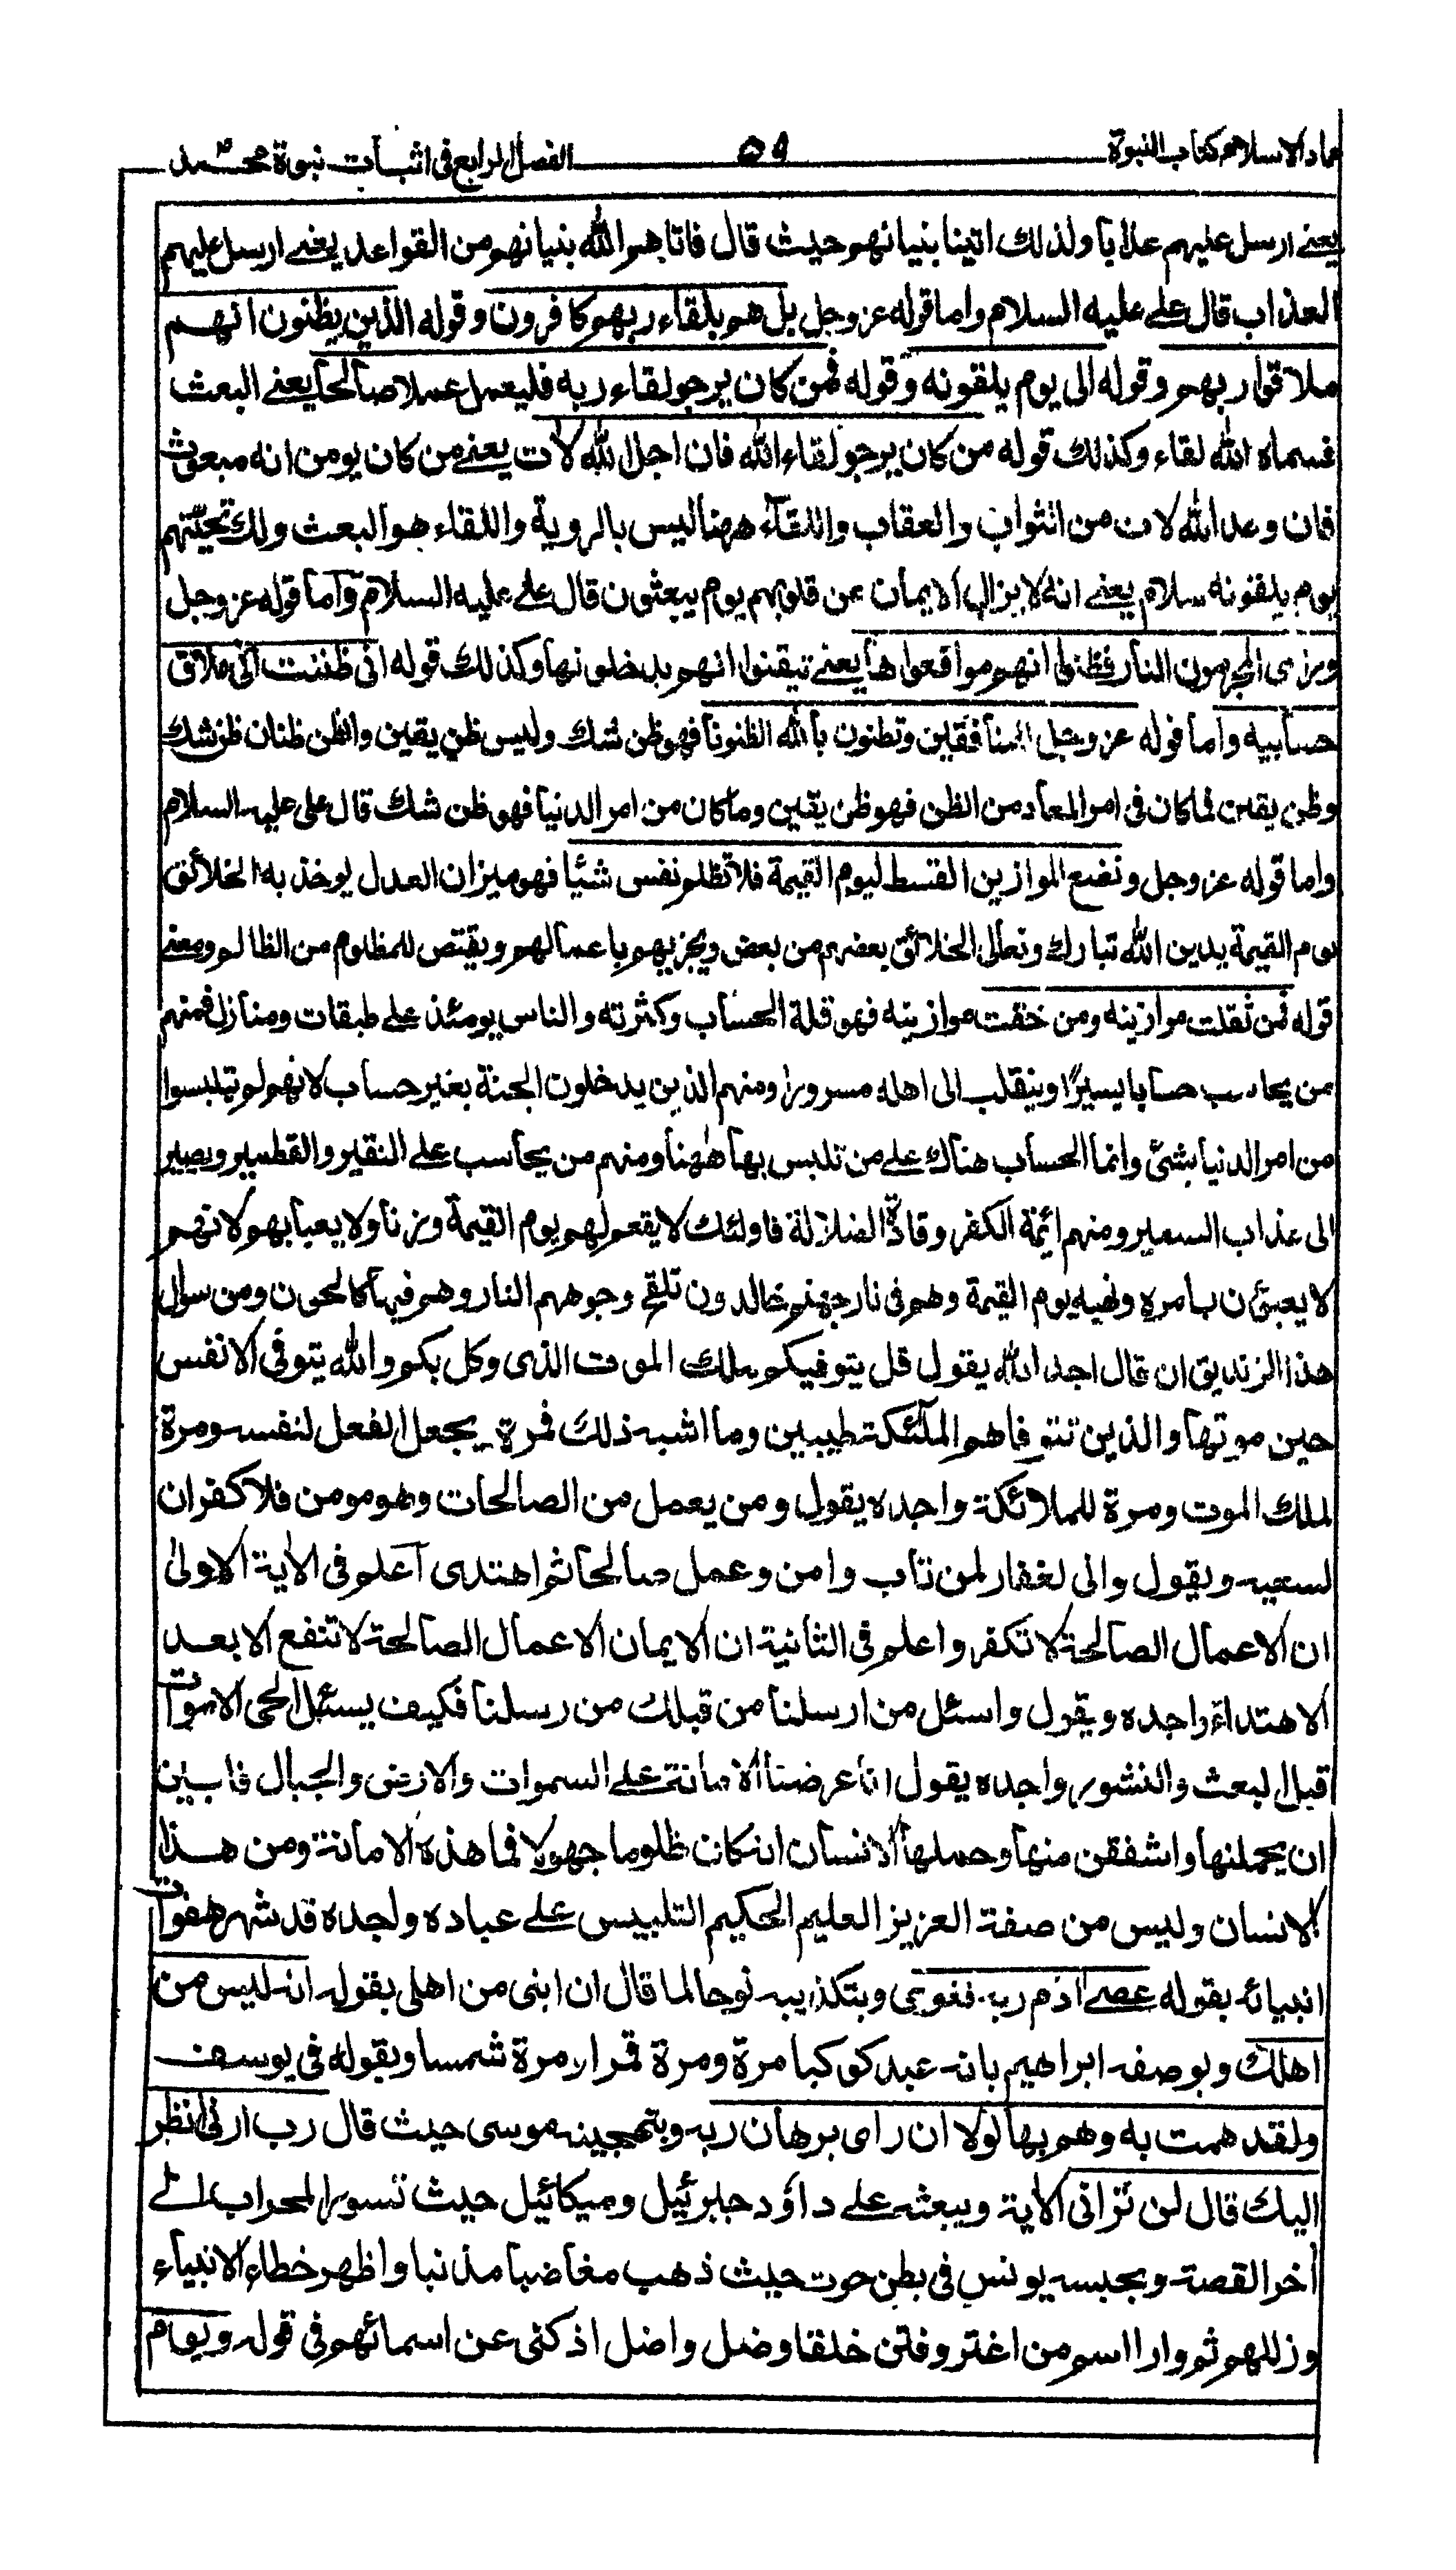 عماد الاسلام كتاب النبوة ٥٩ الفصل الرابع فى اثبات نبوة محمد ص
يعنے ارسل عليهم عذابا ولذلك اتينا بنيانهم حيث قال فاتاهم الله بنيانهم من القواعد يعنے ارسل عليهم
العذاب قال علے عليه السلام واما قوله عز وجل بل هم بلقاء ربهم كافرون وقوله الذين يظنون انهم
ملاقوا ربهم وقوله الى يوم يلقونه وقوله فمن كان يرجو لقاء ربه فليعمل عملا صالحا يعنے البعث
فسماه الله لقاء وكذلك قوله من كان يرجو لقاء الله فان اجل الله لآت يعنے من كان يومن انه مبعوث
فان وعد الله لات من الثواب والعقاب واللقاء ههنا ليس بالروية واللقاء هو البعث ولك تحيتهم
يوم يلقونه سلام يعنے انه لا يزال الايمان عن قلوبهم يوم يبعثون قال علے عليه السلام واما قوله عز وجل
وراى المجرمون النار فظنوا انهم مواقعوها يعنے تيقنوا انهم يدخلونها وكذلك قوله انى ظننت انى ملاق
حسابيه واما قوله عز وجل المنافقين وتظنون بالله الظنونا فهو ظن شك وليس ظن يقين والظن ظنان ظن شك
وظن يقين فما كان فى امر المعاد من الظن فهو ظن يقين وما كان من امر الدنيا فهو ظن شك قال على عليه السلام
واما قوله عز وجل ونضع الموازين القسط ليوم القيمة فلا تظلم نفس شيئا فهو ميزان العدل يوخذ به الخلائق
يوم القيمة يدين الله تبارك وتعالى الخلائق بعضهم من بعض ويجزيهم باعمالهم ويقتص للمظلوم من الظالم ومعنے
قوله فمن ثقلت موازينه ومن خفت موازينه فهو قلة الحساب وكثرته والناس يومئذ علے طبقات ومنازل فمنهم
من يحاسب حسابا يسيرًا وينقلب الى اهله مسرورا ومنهم الذين يدخلون الجنة بغير حساب لانهم لم يتلبسوا
من امر الدنيا بشئ وانما الحساب هناك علے من تلبس بها ههنا ومنهم من يحاسب علے النقير والقطمير ويصير
الى عذاب السعير ومنهم ائمة الكفر وقادة الضلالة فاولئك لا يقعم لهم يوم القيمة وزنا ولا يعبأ بهم لانهم
لا يعبئن بامره ونهيه يوم القيمة وهم فى نار جهنم خالدون تلفح وجوههم النار وهم فيها كالحون ومن سوال
هذا الزنديق ان قال اجد الله يقول قل يتوفيكم ملك الموت الذى وكل بكم والله يتوفى الانفس
حين موتها والذين تتوفاهم الملٓئكة طيبين وما اشبه ذلك فمرة يجعل الفعل لنفسه ومرة
لملك الموت ومرة للملائكة واجده يقول ومن يعمل من الصالحات وهو مومن فلا كفران
لسعيه ويقول وانى لغفار لمن تاب وامن وعمل صالحا ثم اهتدى آعلم فى الاية الاولىٰ
ان الاعمال الصالحة لا تكفر واعلم فى الثانية ان الايمان الاعمال الصالحة لا تنفع الا بعد
الاهتداء واجده ويقول واسئل من ارسلنا من قبلك من رسلنا فكيف يسئل الحى الاموات
قبل البعث والنشور واجده يقول انا عرضنا الامانة علے السموات والارض والجبال فابين
ان يحملنها واشفقن منها وحملها الانسان انه كان ظلوما جهولا فما هذه الامانة ومن هذا
الانسان وليس من صفة العزيز العليم الحكيم التلبيس علے عباده واجده قد شهر هفوات
انبيائه بقوله عصے ادم ربه فغوى وبتكذيبه نوحا لما قال ان ابنى من اهلى بقوله انه ليس من
اهلك وبوصفه ابراهيم بانه عبد كوكبا مرة ومرة قمرا ومرة شمسا وبقوله فى يوسف
ولقد همت به وهم بها لولا ان راى برهان ربه وبتهجينه موسى حيث قال رب ارنى انظر
اليك قال لن ترانى الاية وببعثه علے داؤد جبرئيل وميكائيل حيث تسور المحراب الے
اخر القصة وبحبسه يونس فى بطن حوت حيث ذهب مغاضبا مذنبا واظهر خطاء الانبياء
وزللهم ثم وارا اسم من اغتر وفتن خلقا وضل واضل اذ كنى عن اسمائهم فى قوله ويوم